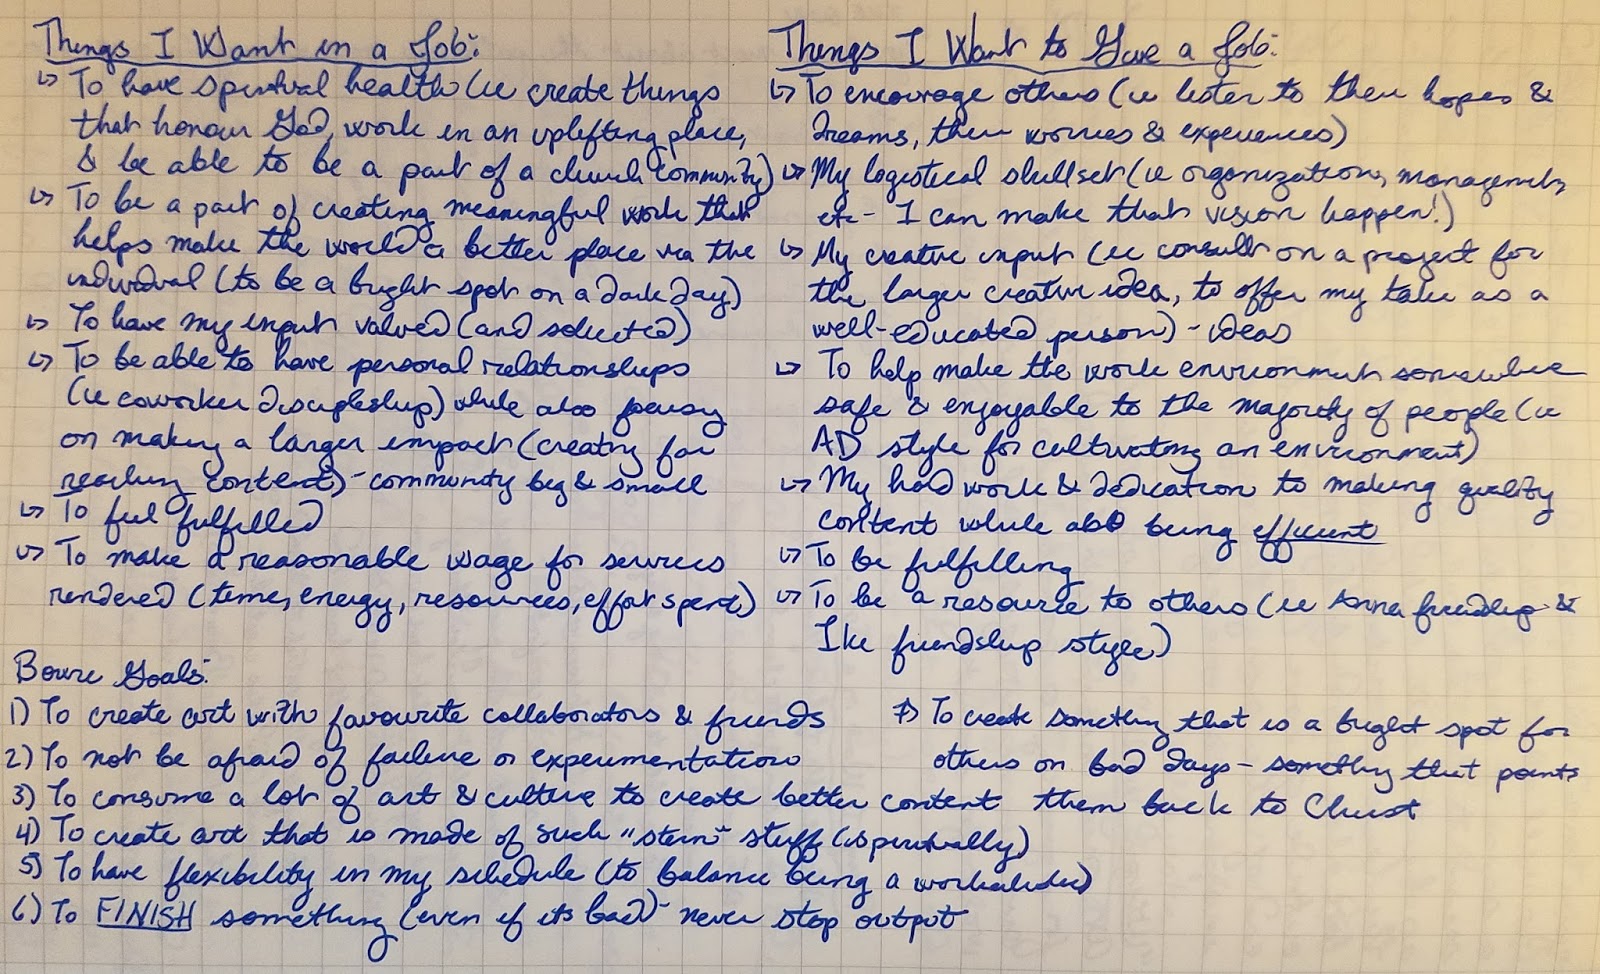 Things I Want in a Job:
↳ To have spiritual health (ie create things
that honour God, work in an uplifting place,
& be able to be a part of a church community)
↳ To be a part of creating meaningful work that
helps make the world a better place via the
individual (to be a bright spot on a dark day)
↳ To have my input valued (and solicited)
↳ To be able to have personal relationships
(ie coworker discipleship) while also focusing
on making a larger impact (creating far
reaching content) - community big & small
↳ To feel fulfilled
↳ To make a reasonable wage for services
rendered (time, energy, resources, effort spent)
Things I Want to Give a Job:
↳ To encourage others (ie listen to their hopes &
dreams, their worries & experiences)
↳ My logistical skillset (ie organization, management,
etc - I can make that vision happen!)
↳ My creative input (ie consult on a project for
the larger creative idea, to offer my take as a
well-educated person) - ideas
↳ To help make the work environment somewhere
safe & enjoyable to the majority of people (ie
AD style for cultivating an environment)
↳ My hard work & dedication to making quality
content while also being efficient
↳ To be fulfilling
↳ To be a resource to others (ie Anna friendship &
Ike friendship style)
Goals:
1) To create art with favourite collaborators & friends
2) To not be afraid of failure or experimentation
3) To consume a lot of art & culture to create better content
4) To create art that is made of such "stern" stuff (spiritually)
5) To have flexibility in my schedule (to balance being a workaholic)
6) To FINISH something (even if its bad) - never stop output
7) To create something that is a bright spot for
others on bad days - something that points
them back to Christ